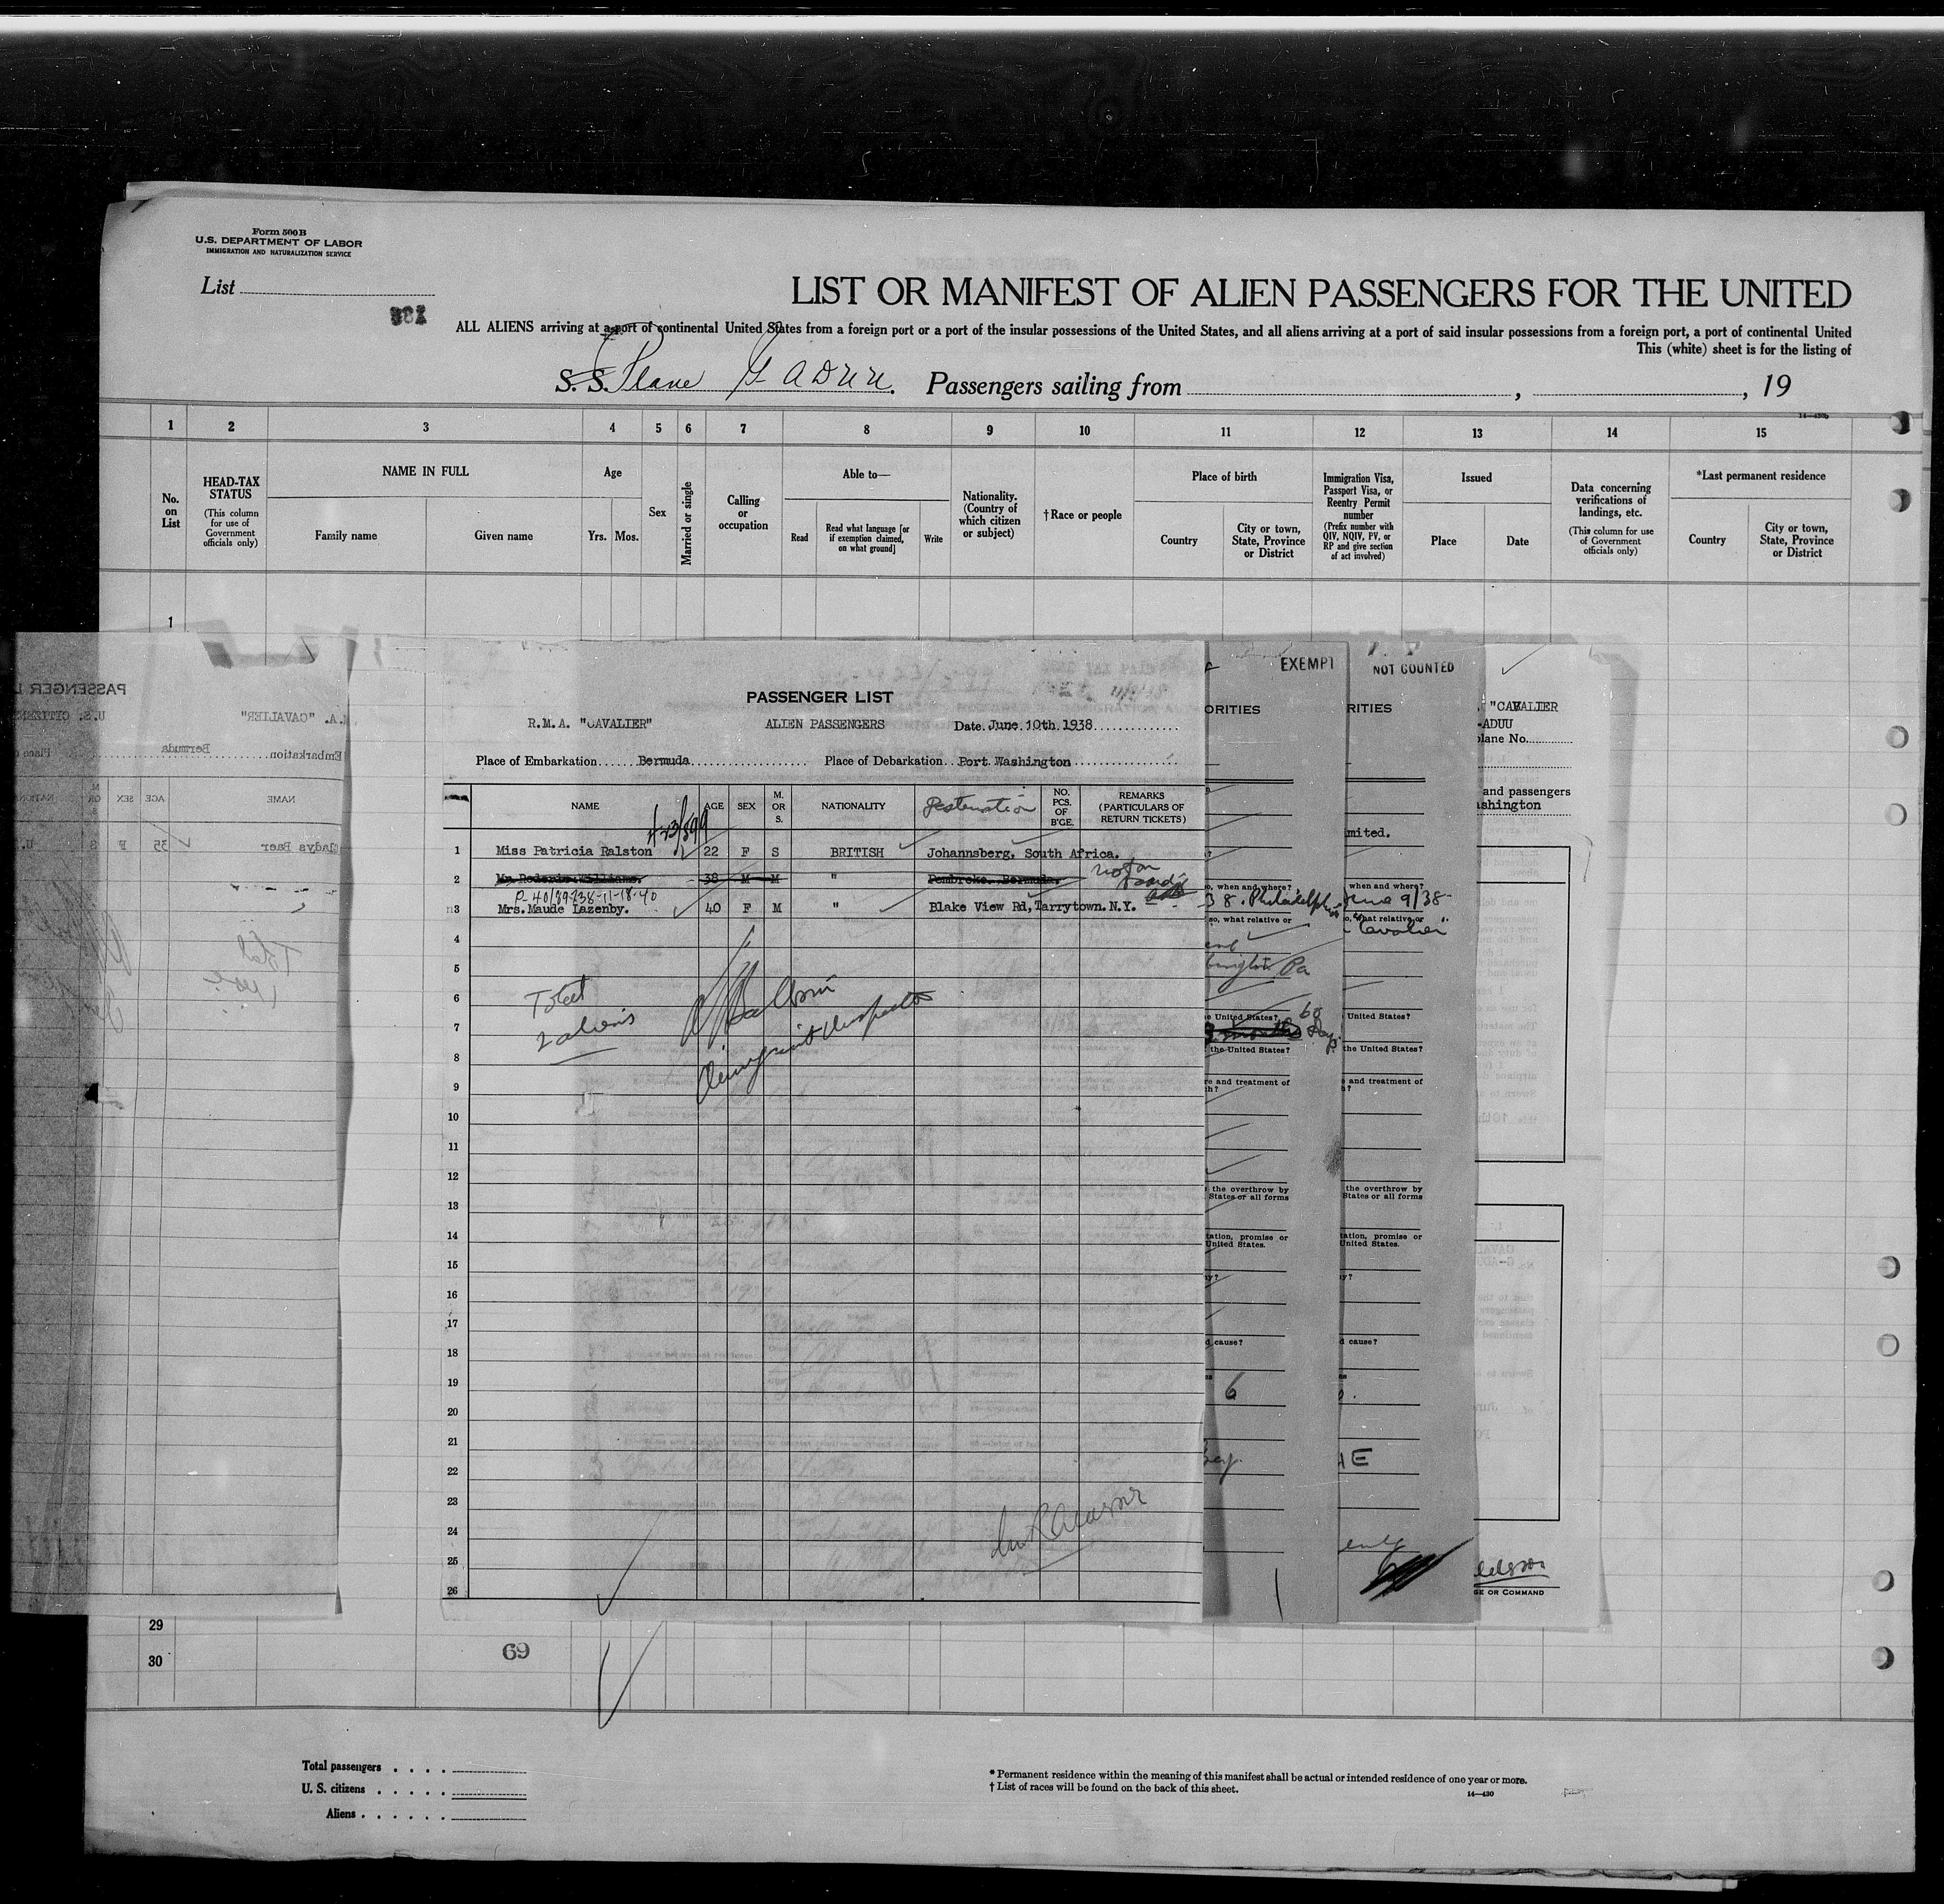 Form 500 B
U.S. DEPARTMENT OF LABOR
IMMIGRATION AND NATURALIZATION SERVICE
List
LIST OR MANIFEST OF ALIEN PASSENGERS FOR THE UNITED
ALL ALIENS arriving at a port of continental United States from a foreign port or a port of the insular possessions of the United States, and all aliens arriving at a port of said insular possessions from a foreign port, a port of continental United
This (white) sheet is for the listing of
S. S. Plane G-ADUU. Passengers sailing from , , 19
14—430b
1 2 3 4 5 6 7 8 9 10 11 12 13 14 15
No. on List
HEAD-TAX STATUS
(This column for use of Government officials only)
NAME IN FULL
Family name
Given name
Age
Yrs. Mos.
Sex
Married or single
Calling or occupation
Able to—
Read
Read what language [or if exemption claimed, on what ground]
Write
Nationality. (Country of which citizen or subject)
†Race or people
Place of birth
Country
City or town, State, Province or District
Immigration Visa, Passport Visa, or Reentry Permit number
(Prefix number with QIV, NQIV, PV, or RP and give section of act involved)
Issued
Place
Date
Data concerning verifications of landings, etc.
(This column for use of Government officials only)
*Last permanent residence
Country
City or town, State, Province or District
1
PASSENGER L
U.S. CITIZENS
.A. "CAVALIER"
Embarkation Bermuda Place
NAME AGE SEX M OR S
Gladys Baer 35 F S U.
Total
PASSENGER LIST
R.M.A. "CAVALIER" ALIEN PASSENGERS Date. June 10th 1938
Place of Embarkation. Bermuda Place of Debarkation. Port Washington
NAME AGE SEX M. OR S. NATIONALITY Destination NO. PCS. OF B'GE. REMARKS (PARTICULARS OF RETURN TICKETS)
1 Miss Patricia Ralston 22 F S BRITISH Johannsberg, South Africa.
2 Mr. Roderic Williams. 38 M M " Pembroke. Bermuda. not on board
3 Mrs. Maude Lazenby. 40 F M " Blake View Rd, Tarrytown. N.Y.
4
5
6
7
8
9
10
11
12
13
14
15
16
17
18
19
20
21
22
23
24
25
26
Total
2 aliens
Immigrant Inspector
EXEMPT
ORITIES
so, when and where?
38. Philadelphia
so, what relative or
Pa
e United States?
60 days
the United States?
re and treatment of
th?
the overthrow by
States or all forms
tation, promise or
United States.
ny?
d cause?
6
NOT COUNTED
RITIES
imited.
when and where?
June 9/38
o, what relative or
Cavalier"
United States?
the United States?
and treatment of
h?
the overthrow by
States or all forms
tation, promise or
United States.
y?
d cause?
E
"CAVALIER
-ADUU
plane No.
and passengers
shington
GE OR COMMAND
29
30
69
Total passengers
U. S. citizens
Aliens
* Permanent residence within the meaning of this manifest shall be actual or intended residence of one year or more.
† List of races will be found on the back of this sheet.
14—430